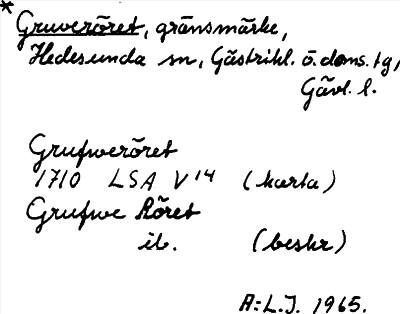 * Gruveröret, gränsmärke,
Hedesunda sn, Gästrikl. ö. doms. tg,
Gävl. l.
Grufweröret
1710 LSA V 14 (karta)
Grufwe Röret
ib. (beskr)
A:L.J. 1965.